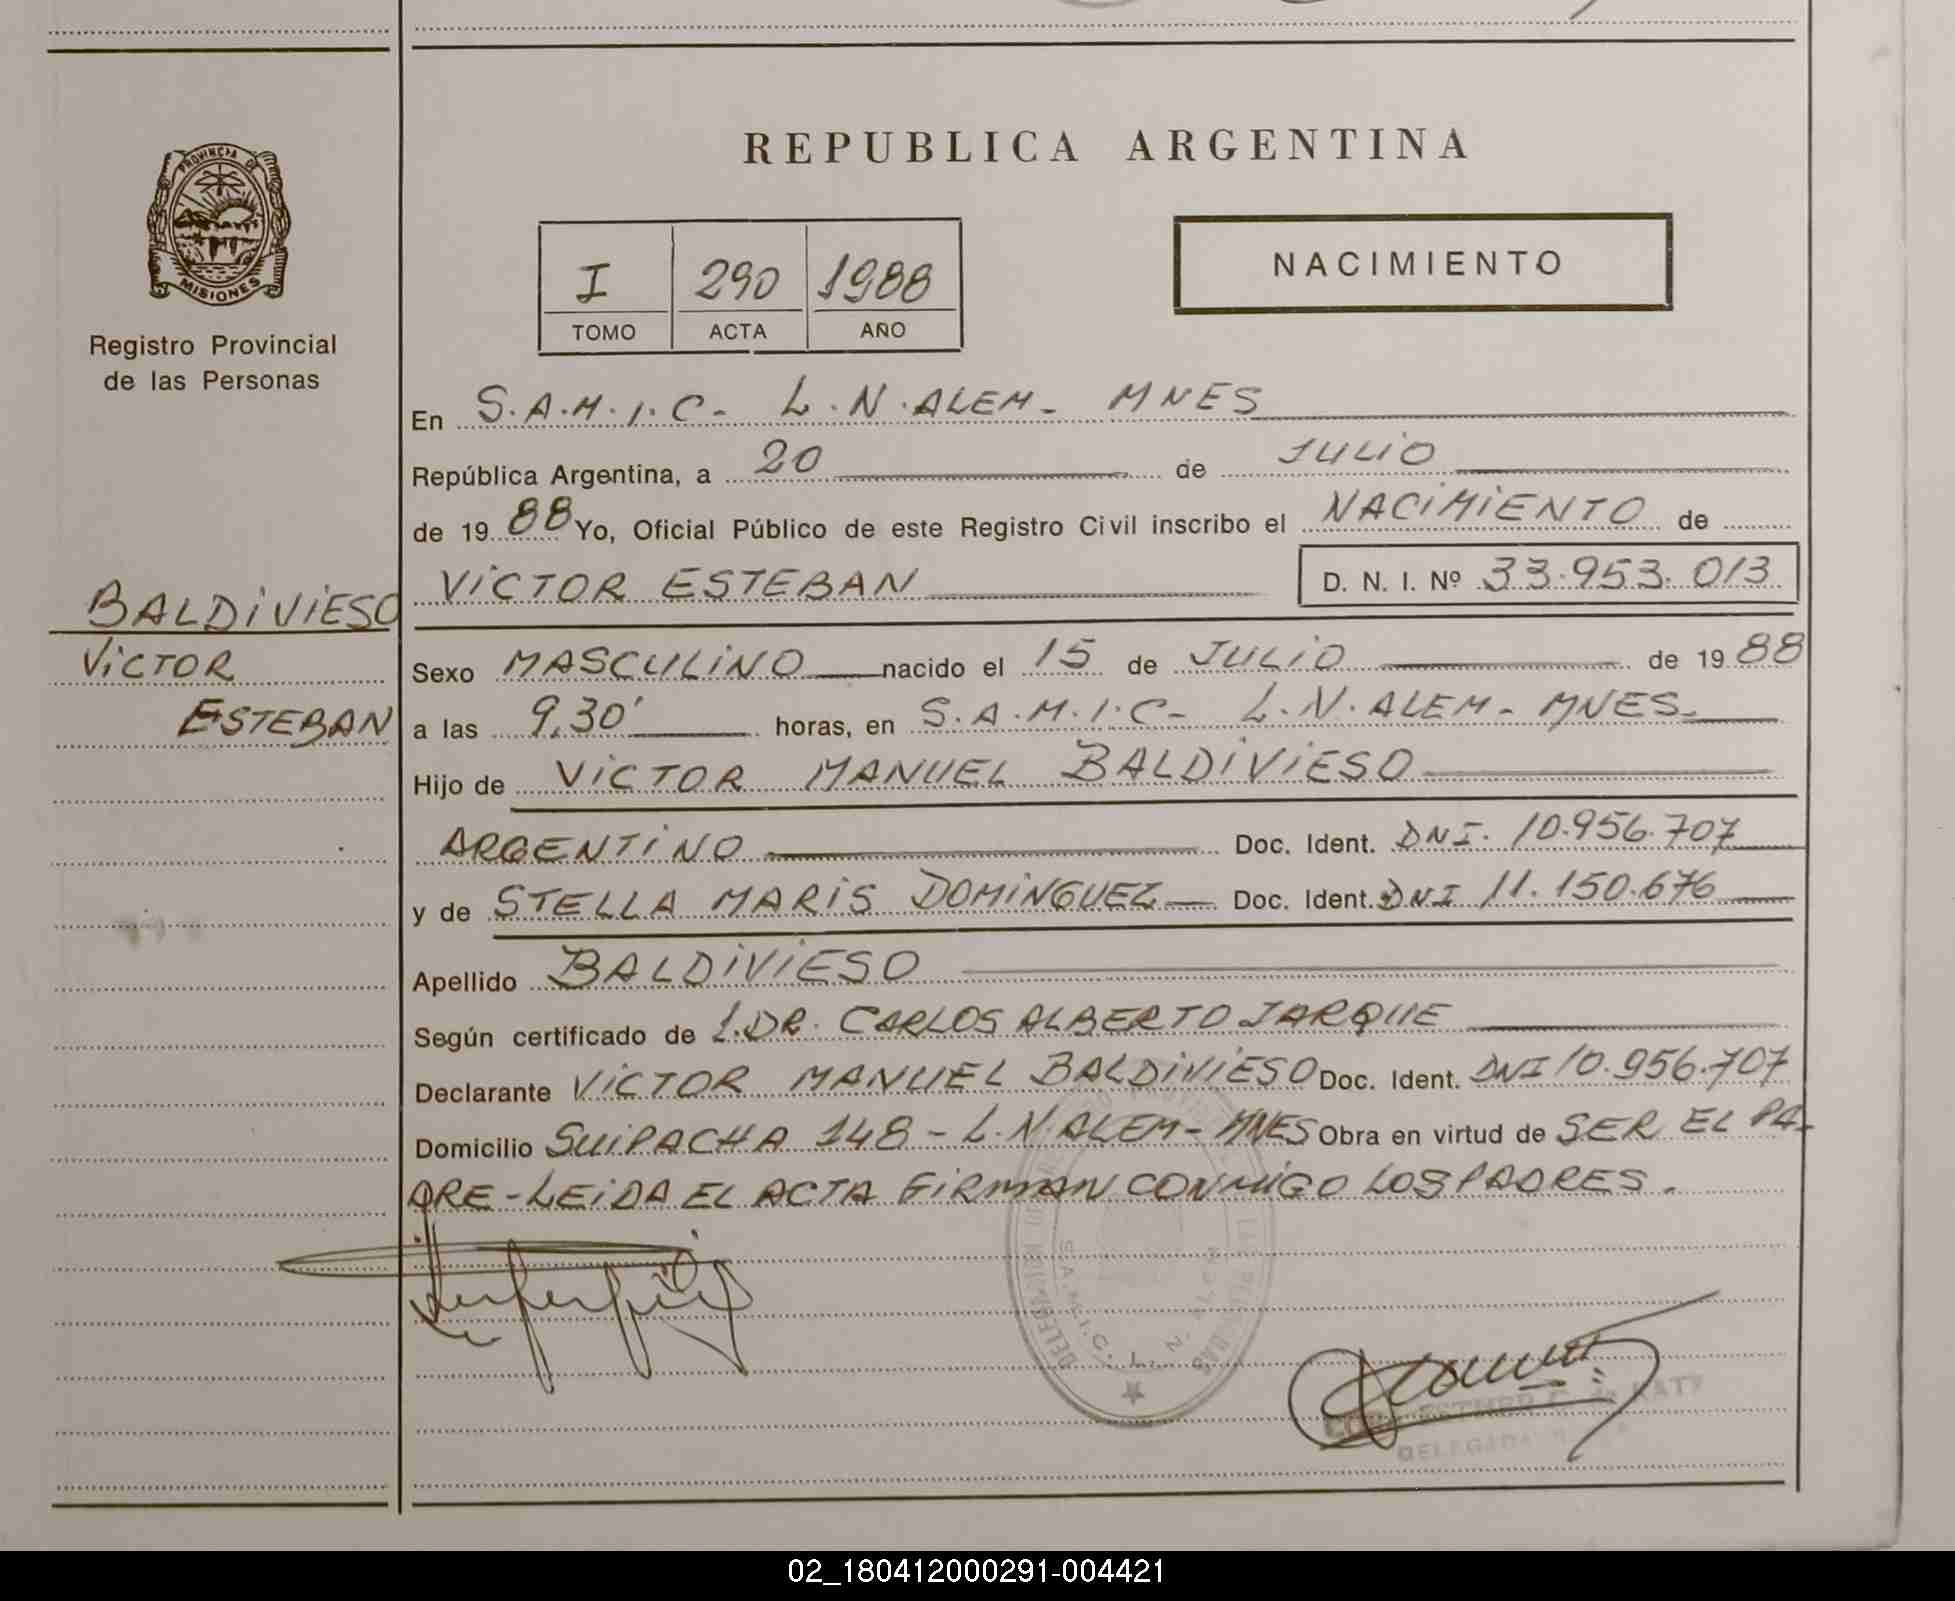 PROVINCIA DE
MISIONES
Registro Provincial
de las Personas
BALDIVIESO
VICTOR
ESTEBAN
REPUBLICA ARGENTINA
I 290 1988
TOMO ACTA AÑO
NACIMIENTO
En S.A.M.I.C- L.N.ALEM- MNES
República Argentina, a 20 de JULIO
de 1988 Yo, Oficial Público de este Registro Civil inscribo el NACIMIENTO de
VICTOR ESTEBAN D. N. I. Nº 33.953.013
Sexo MASCULINO nacido el 15 de JULIO de 1988
a las 9,30' horas, en S.A.M.I.C- L.N.ALEM- MNES-
Hijo de VICTOR MANUEL BALDIVIESO
ARGENTINO Doc. Ident. DNI. 10.956.707
y de STELLA MARIS DOMINGUEZ Doc. Ident. DNI 11.150.676
Apellido BALDIVIESO
Según certificado de DR. CARLOS ALBERTO JARQUE
Declarante VICTOR MANUEL BALDIVIESO Doc. Ident. DNI 10.956.707
Domicilio SUIPACHA 148 - L.N.ALEM- MNES Obra en virtud de SER EL PA-
DRE-LEIDA EL ACTA FIRMAN CONMIGO LOS PADRES.
S.A.M.I.C. L. N. ALEM
ESTHER
DELEGADA
02_180412000291-004421